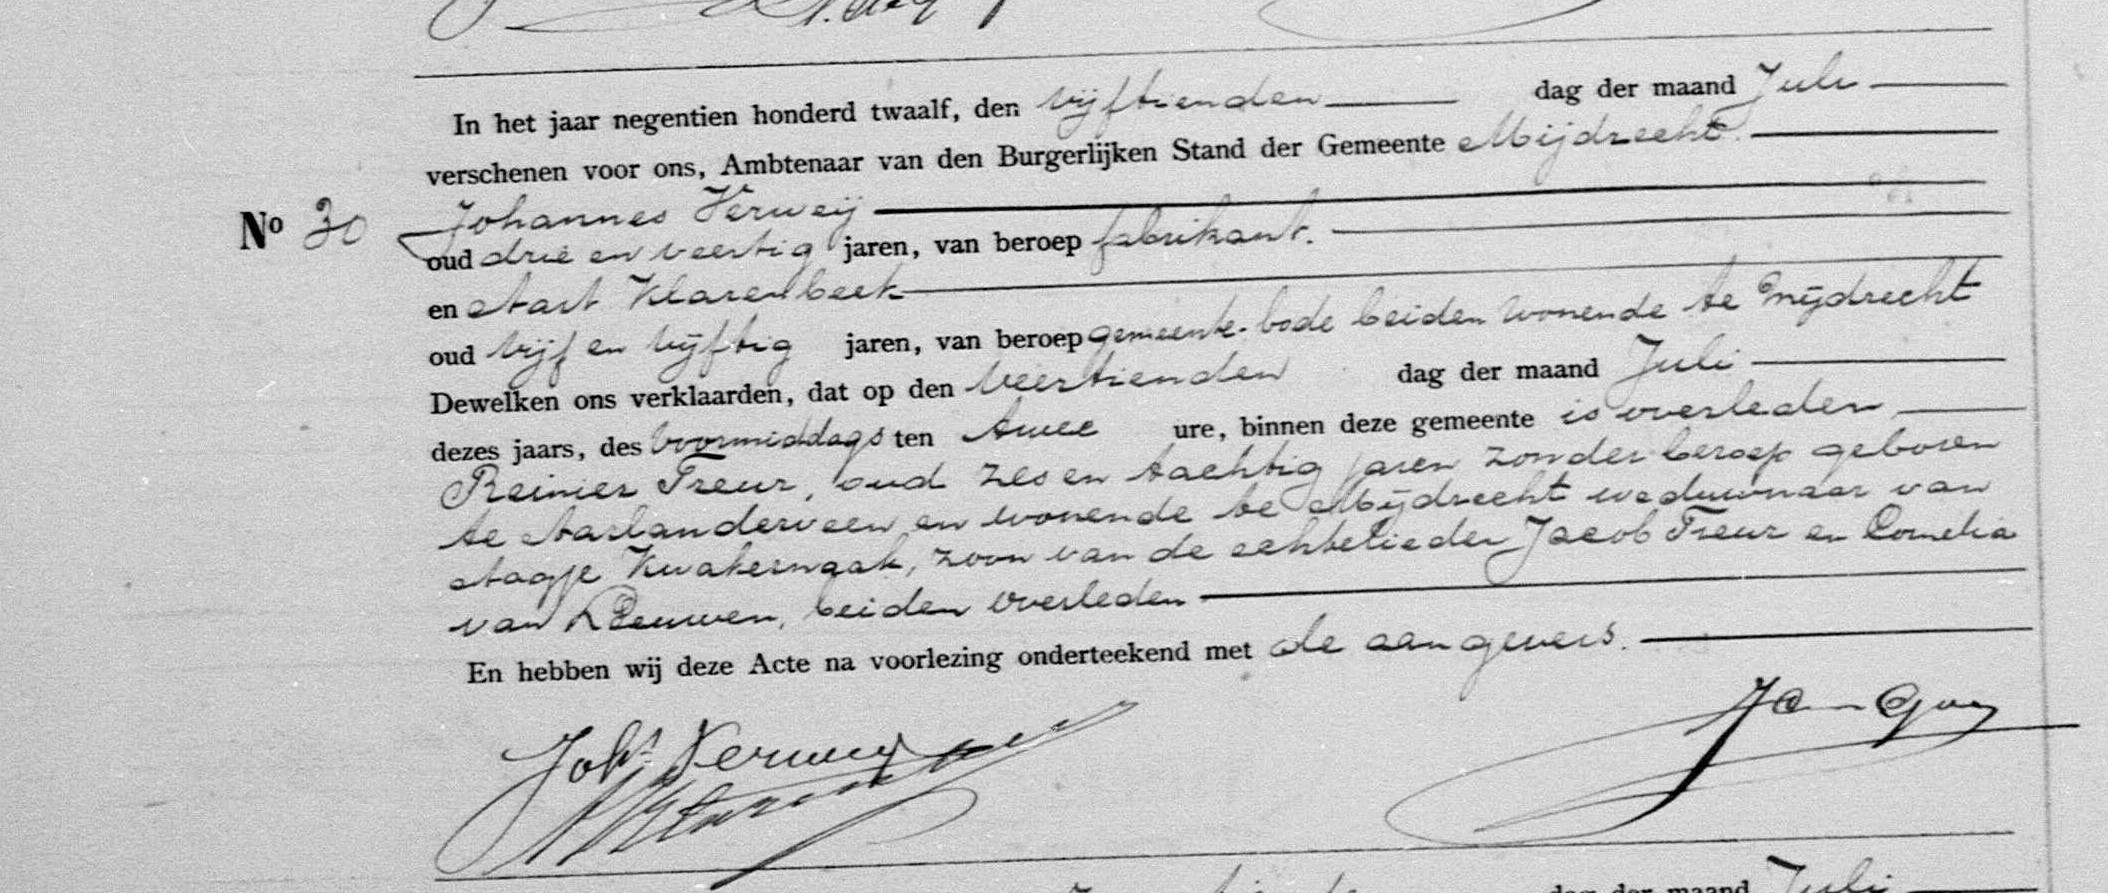 In het jaar negentien honderd twaalf, den vijftienden dag der maand Juli
verschenen voor ons, Ambtenaar van den Burgerlijken Stand der Gemeente Mijdrecht.
No 30 Johannes Verweij
oud drie en veertig jaren, van beroep fabrikant.
en Aart Klarenbeek
oud vijf en vijftig jaren, van beroep gemeente-bode beiden wonende te Mijdrecht
Dewelken ons verklaarden, dat op den veertienden dag der maand Juli
dezes jaars, des voormiddags ten twee ure, binnen deze gemeente is overleden
Reinier Treur, oud zes en tachtig jaren zonder beroep geboren
te Aarlanderveen en wonende te Mijdrecht weduwnaar van
Aagje Kwakernaak, zoon van de echtelieden Jacob Treur en Cornelia
van Leeuwen, beiden overleden
En hebben wij deze Acte na voorlezing onderteekend met de aangevers.
Joh.s Verweij
dag der maand Juli